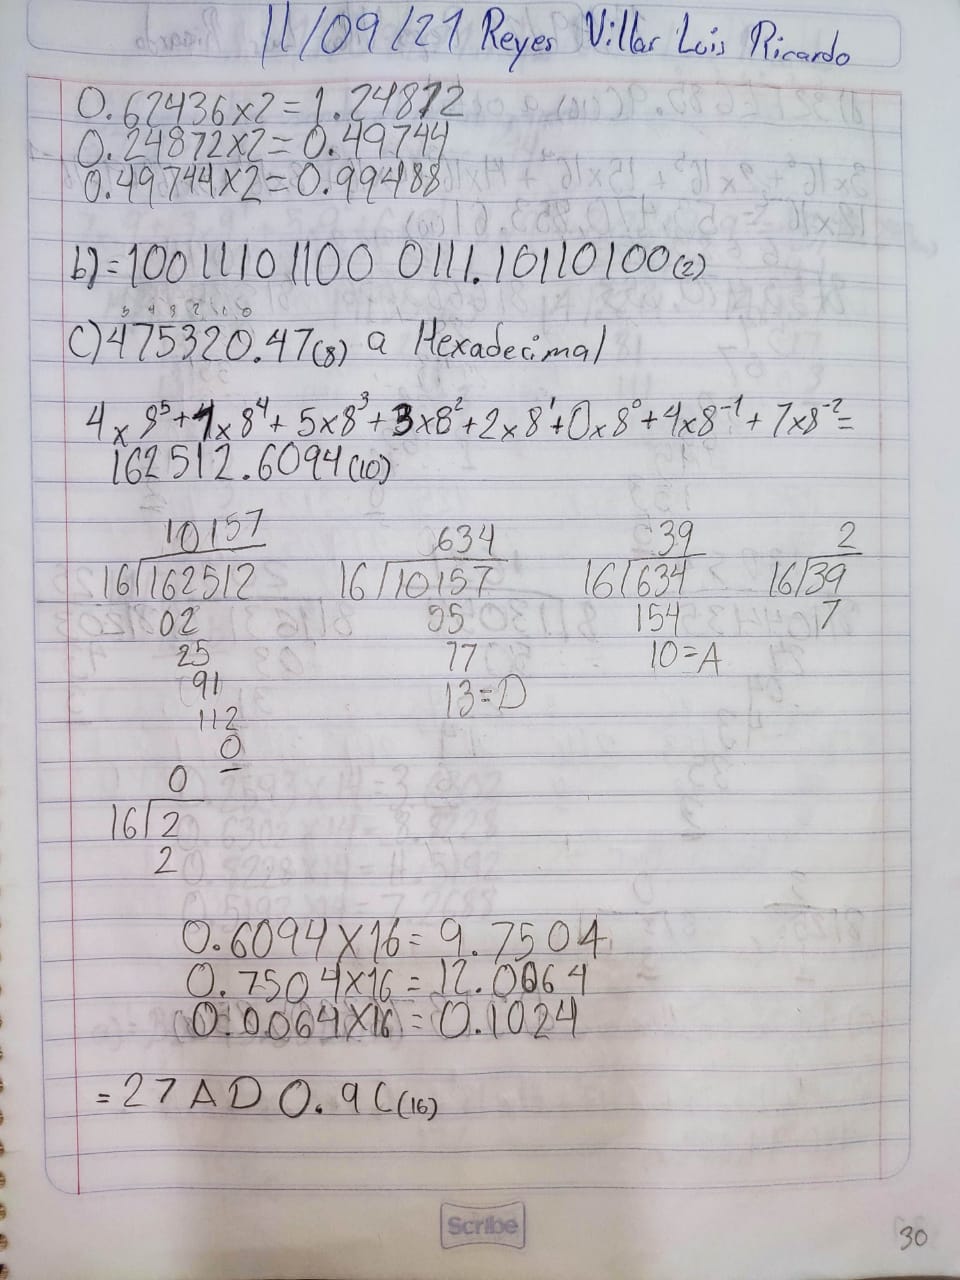 11/09/21 Reyes Villar Luis Ricardo
0.62436x2=1.24872
0.24872x2=0.49744
0.49744x2=0.99488
b)=100111011000111.10110100(2)
5 4 3 2 1 0
C)475320.47(8) a Hexadecimal
4x8⁵+7x8⁴+5x8³+3x8²+2x8¹+0x8⁰+4x8⁻¹+7x8⁻²=
162512.6094(10)
10157 634 39 2
16/162512 16/10157 16/634 16/39
02 55 154 7
25 77 10=A
91 13=D
112
0
0
16/2
2
0.6094X16=9.7504
0.7504X16=12.0064
0.0064X16=0.1024
=27AD0.9C(16)
Scribe
30